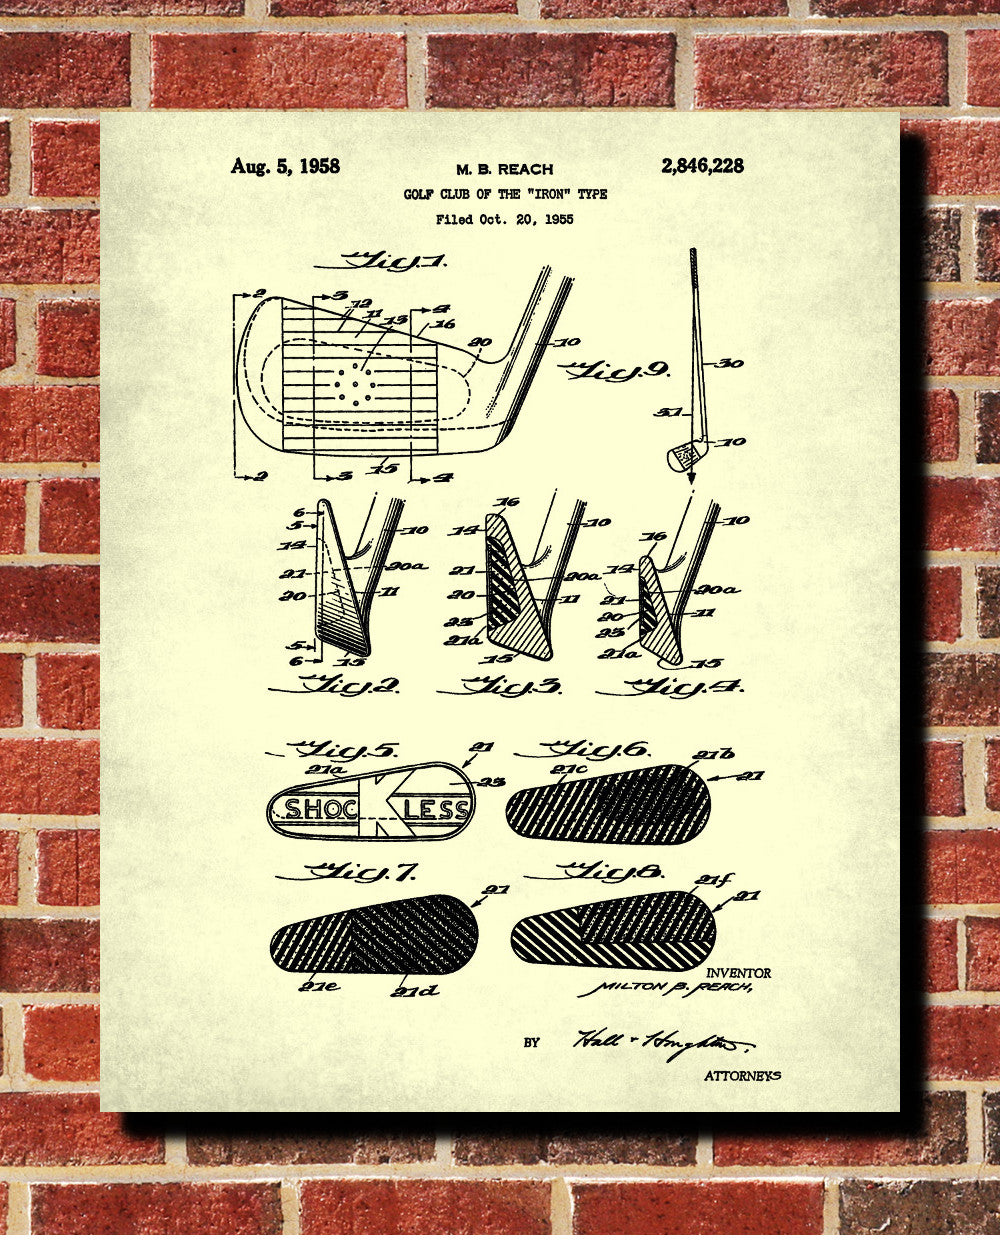 Aug. 5, 1958 M. B. REACH 2,846,228
GOLF CLUB OF THE "IRON" TYPE
Filed Oct. 20, 1955
Fig.1.
2 3 12 11 13 4 16 20 10
2 3 15 4
Fig.9.
30
31
10
6 5 14 21 20 5 6 15 10 20a 11
Fig.2.
16 14 21 20 23 21a 15 10 20a 11
Fig.3.
16 14 21 20 23 21a 15 10 20a 11
Fig.4.
Fig.5. 21
21a 23
SHOCKLESS
Fig.6. 21b
21c 21
Fig.7. 21
21e 21d
Fig.8. 21f
21
INVENTOR
MILTON B. REACH,
BY Hall & Houghton.
ATTORNEYS